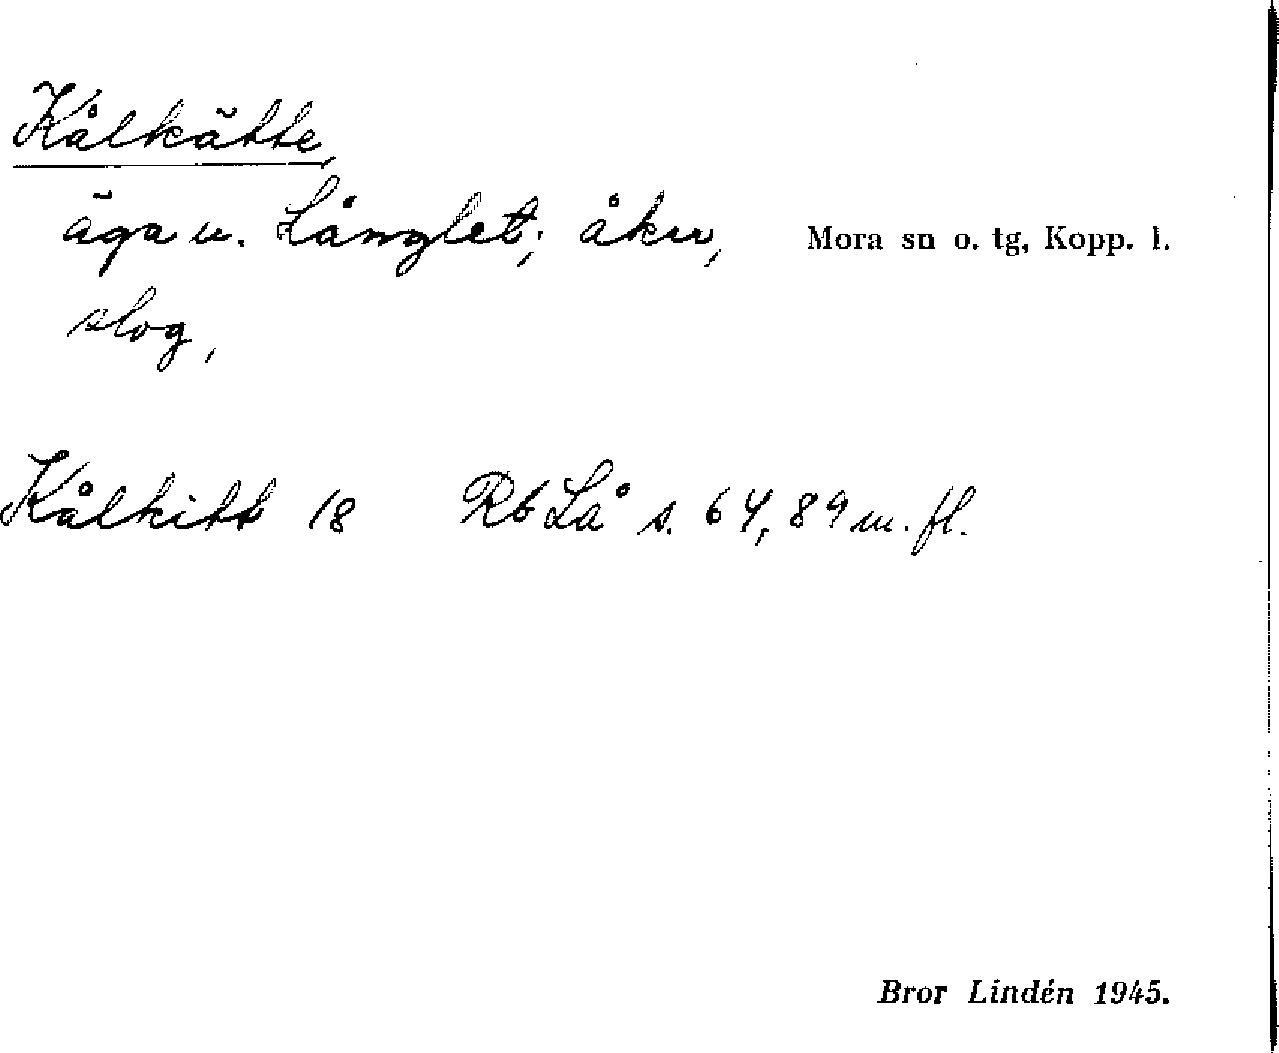 Kålkätte,
äga u. Långlet; åker, Mora sn o. tg, Kopp. l.
slog,
Kålkitt 18 Rb Lå s. 64, 89 m. fl.
Bror Lindén 1945.